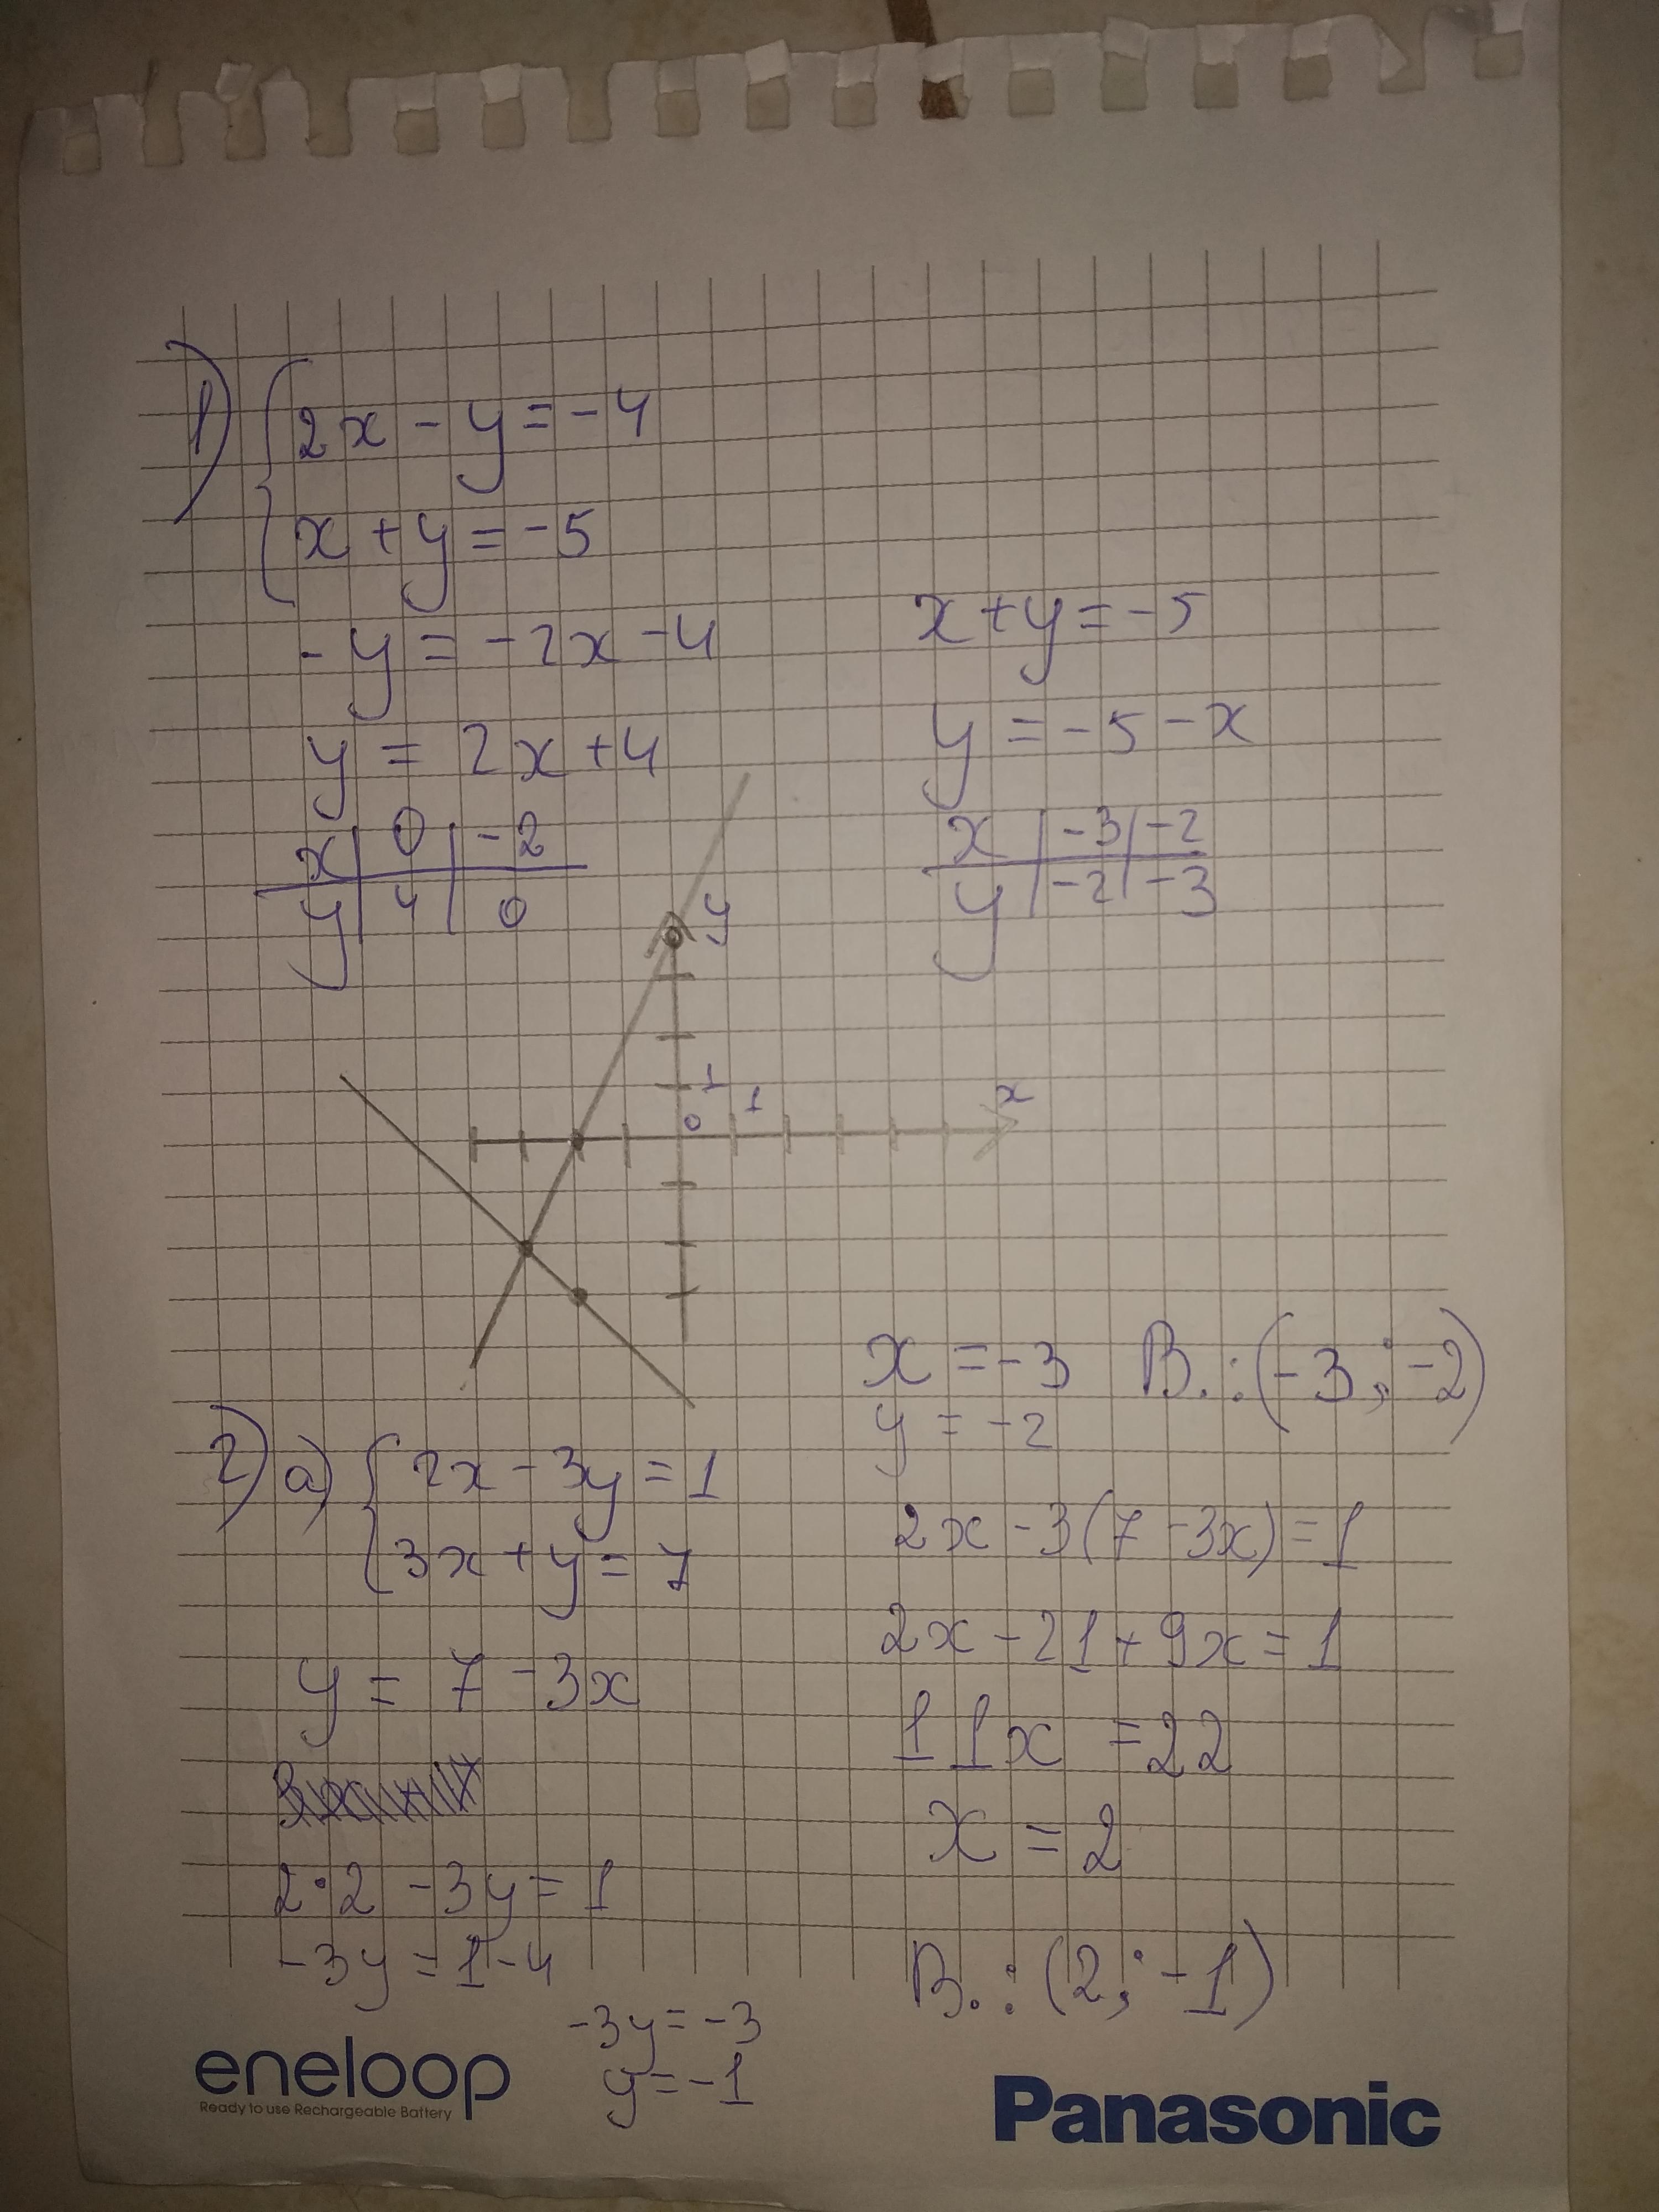 1) { 2x - y = -4
x + y = -5
-y = -2x - 4
y = 2x + 4
x | 0 | -2
y | 4 | 0
x + y = -5
y = -5 - x
x | -3 | -2
y | -2 | -3
y
1
0 1 x
x = -3 B.: (-3; -2)
y = -2
2) a) { 2x - 3y = 1
3x + y = 7
y = 7 - 3x
2x - 3(7 - 3x) = 1
2x - 21 + 9x = 1
11x = 22
x = 2
2·2 - 3y = 1
-3y = 1 - 4
-3y = -3
y = -1
B.: (2; -1)
eneloop
Ready to use Rechargeable Battery
Panasonic